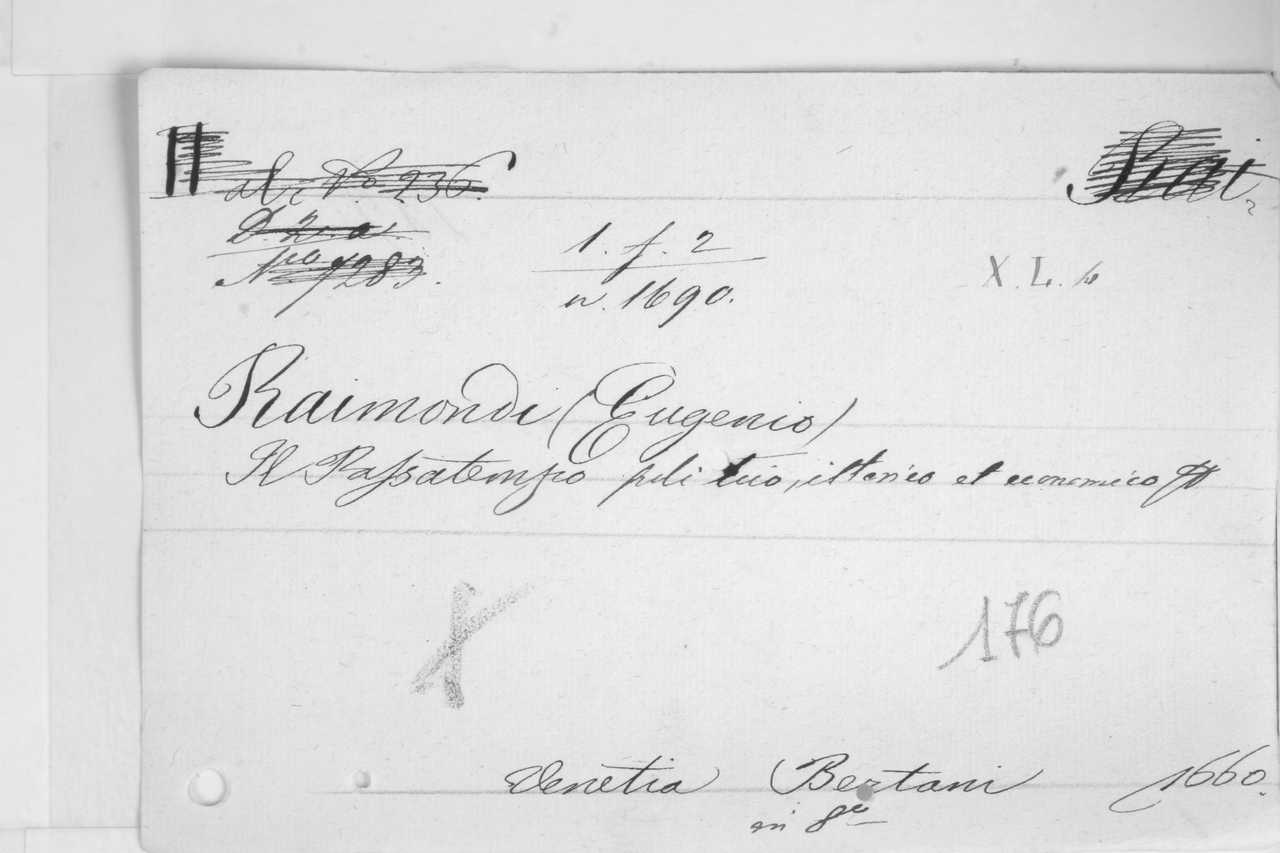 al. No 236.
D. 2. a.
No 7283.
1. f. 2
n. 1690.
X. L.
Raimondi (Eugenio)
Il Passatempo politico, istorico et economico
176
Venetia Bertani 1660.
in 8vo